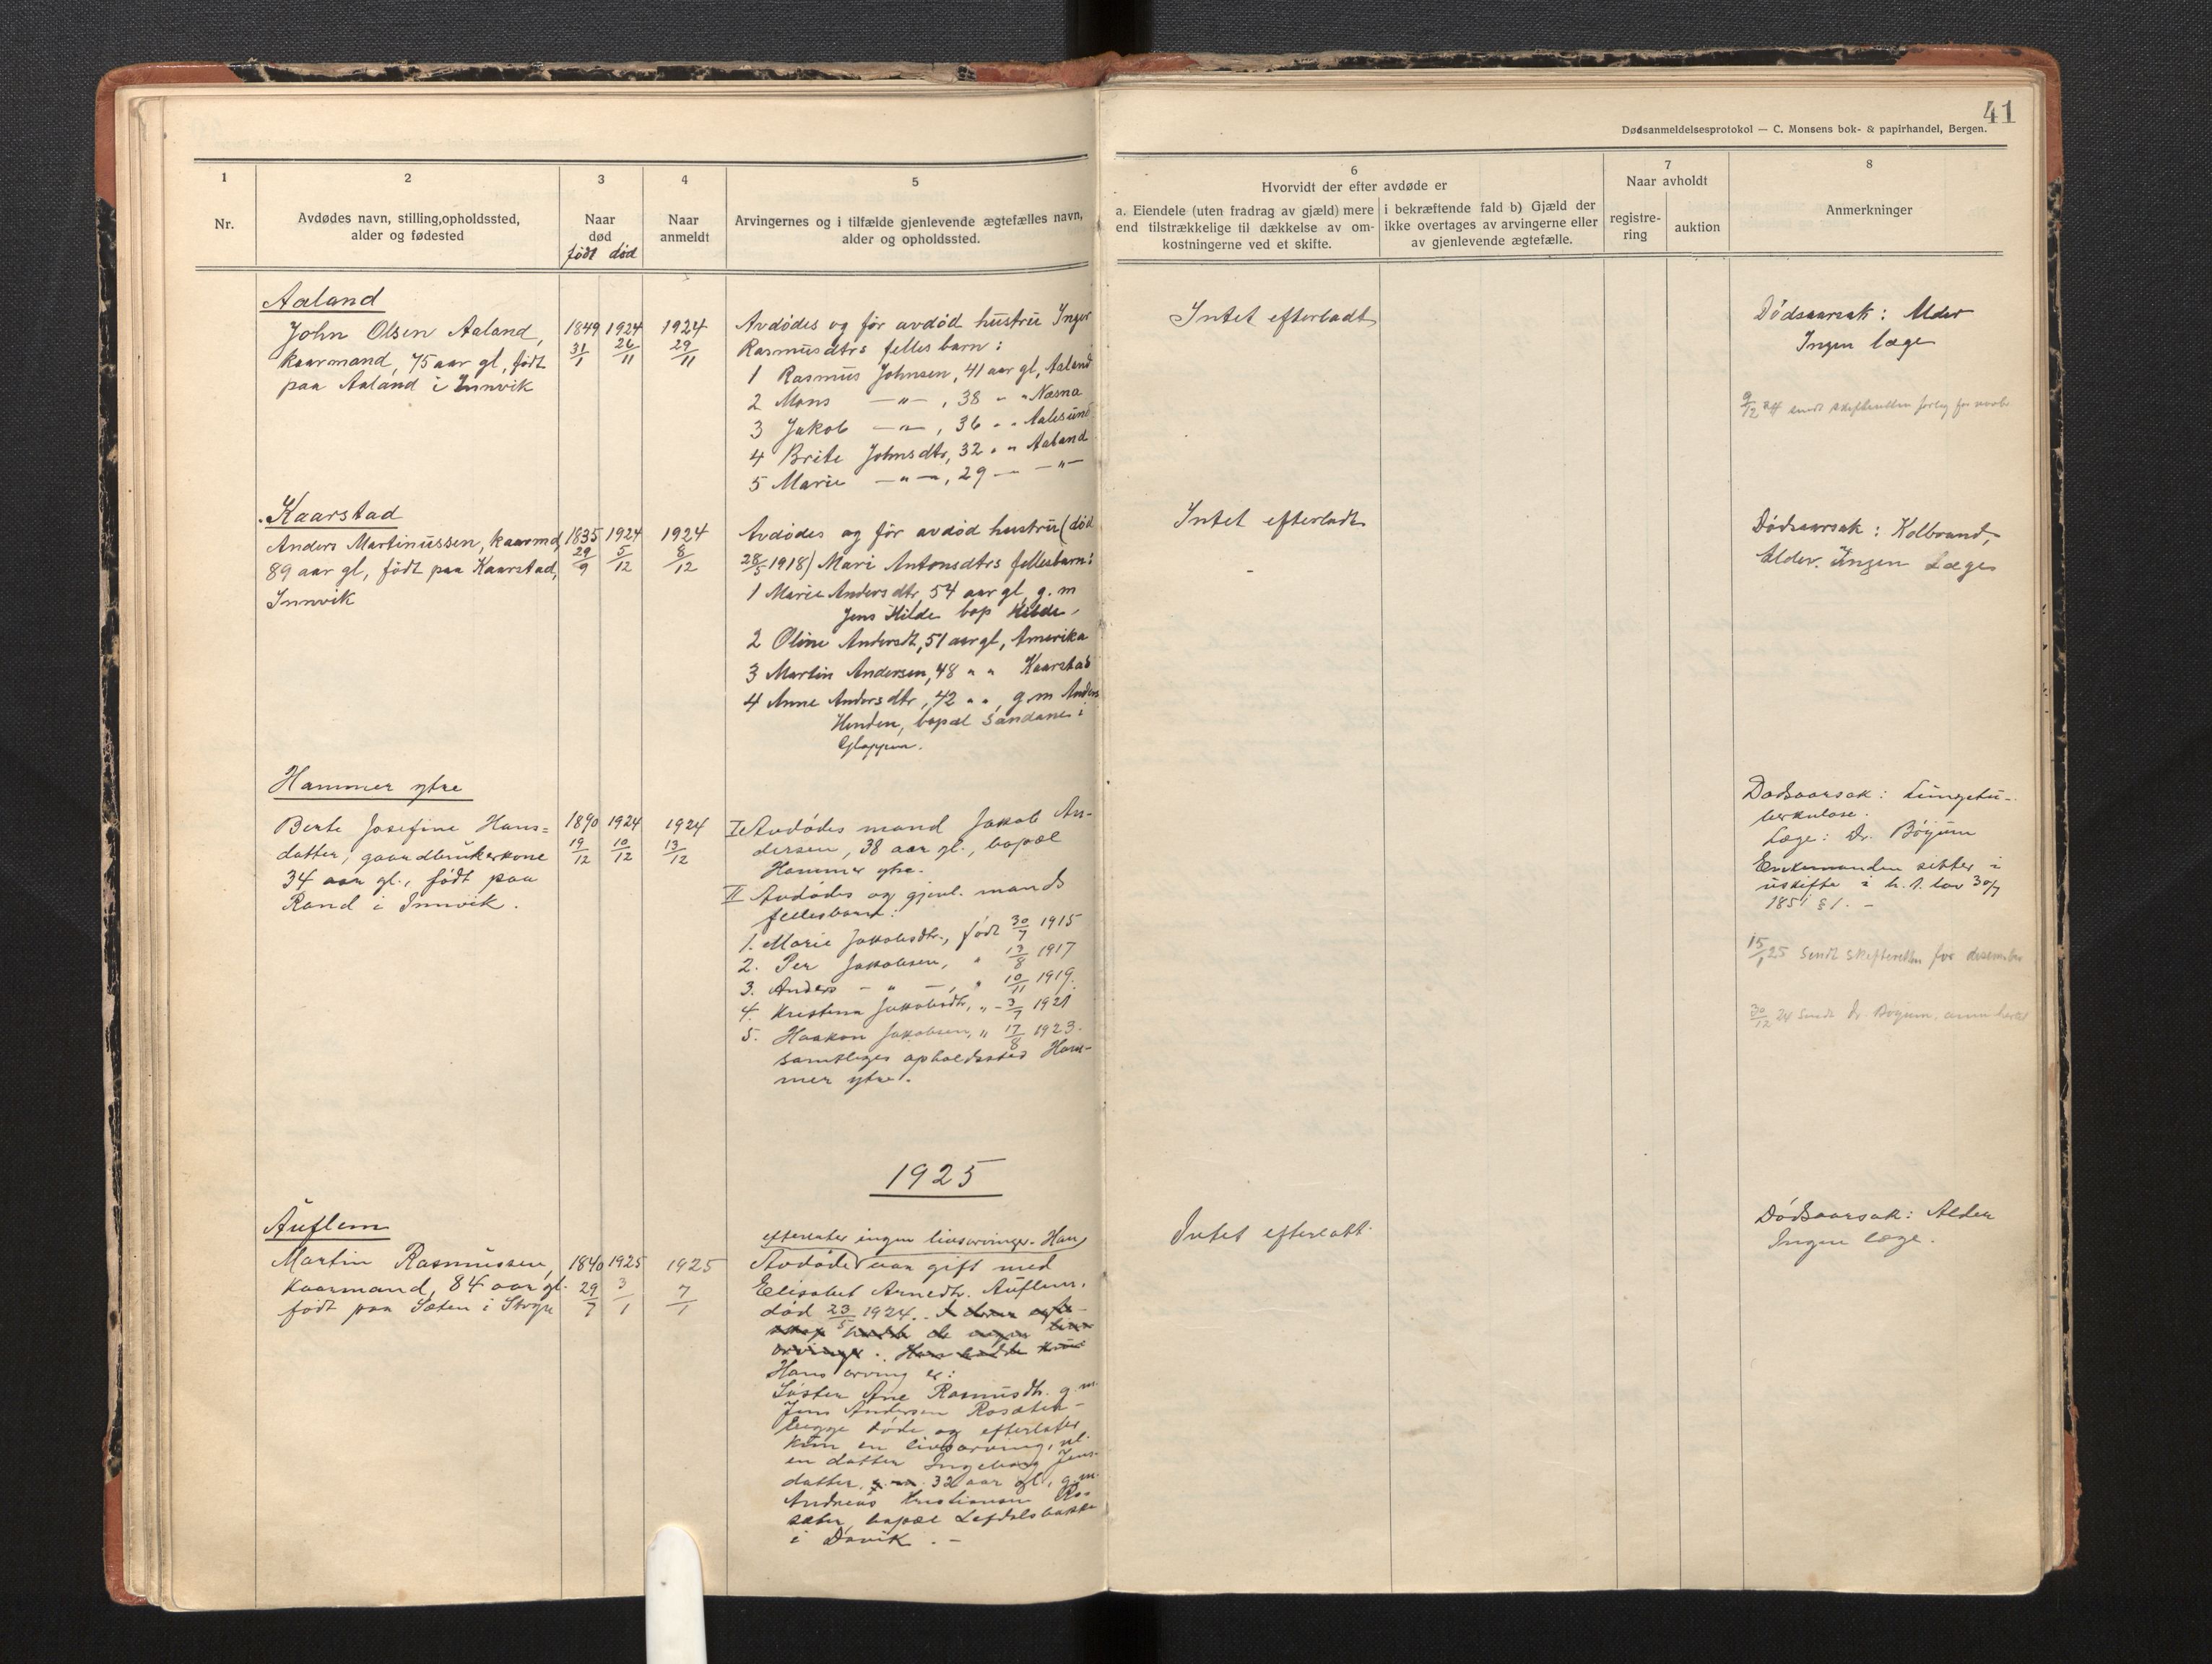 41
Dødsanmeldelsesprotokol — C. Monsens bok- & papirhandel, Bergen.
1
Nr.
2
Avdødes navn, stilling, opholdssted,
alder og fødested
3
Naar
død
født død
4
Naar
anmeldt
5
Arvingernes og i tilfælde gjenlevende ægtefælles navn,
alder og opholdssted.
6
Hvorvidt der efter avdøde er
a. Eiendele (uten fradrag av gjæld) mere
end tilstrækkelige til dækkelse av om-
kostningerne ved et skifte.
i bekræftende fald b) Gjæld der
ikke overtages av arvingerne eller
av gjenlevende ægtefælle.
7
Naar avholdt
registre-
ring
auktion
8
Anmerkninger
Aaland
John Olsen Aaland,
kaarmand, 75 aar gl, født
paa Aaland i Innvik
1849 1924
31/1 26/11
1924
29/11
Avdødes og før avdød hustru Inger
Rasmusdtrs felles barn:
1 Rasmus Johnsen, 41 aar gl, Aaland
2 Mons —"— , 38 " " Næsna
3 Jakob —"— , 36 " " Aalesund
4 Brite Johnsdtr, 32 " " Aaland
5 Marie —"—, 29 — —"—
Intet efterladt
Dødsaarsak: Alder
Ingen læge
9/12 24 sendt skifteretten
Kaarstad
Anders Martinussen, kaarmd,
89 aar gl, født paa Kaarstad,
Innvik
1835 1924
29/9 5/12
1924
8/12
Avdødes og før avdød hustru (død
28/5 1918) Mari Antonsdtrs fellesbarn:
1 Marie Andersdtr, 54 aar gl, g. m
Jens Hilde bop Hilde
2 Oline Andersdt, 51 aar gl, Amerika
3 Martin Andersen, 48 " " Kaarstad
4 Anne Andersdtr, 42 " ", g m Anders
Henden, bopæl Sandane i
Gloppen.
Intet efterladt
-
Dødsaarsak: Kolbrand,
Alder. Ingen Læge
Hammer ytre
Berte Josefine Hans=
datter, gaardbrukerkone
34 aar gl., født paa
Rand i Innvik.
1890 1924
19/12 10/12
1924
13/12
I Avdødes mand Jakob An-
dersen, 38 aar gl., bopæl
Hammer ytre.
II Avdødes og gjenl. mands
fellesbarn:
1. Marie Jakobsdtr., født 30/7 1915
2. Per Jakobsen, " 13/8 1917
3. Anders — " —, " 10/11 1919.
4. Kristina Jakobsdtr, " - 3/7 1921
5. Haakon Jakobsen, " 17/8 1923.
samtliges opholdssted Ham-
mer ytre.
Dødsaarsak: Lungetu-
berkulose.
Læge: Dr. Bøyum
Enkemanden sitter i
uskifte i h. t. lov 30/7
1851 § 1. -
15/1 25 sendt skifteretten for desember
30/12 24 sendt Dr. Bøyum,
1925
Auflem
Martin Rasmussen,
kaarmand, 84 aar gl.
født paa Sæten i Stryn
1840 1925
29/7 3/1
1925
7/1
efterlater ingen livsarvinger. Han
Avdøde var gift med
Elisabet Arnedtr. Auflem.
død 23/5 1924.
Hans arving er:
Søster Ane Rasmusdtr. g. m.
Jens Andersen Rosæter-
begge døde og efterlater
kun en livsarving, nl.
en datter Ingeborg Jens-
datter, 32 aar gl., g. m.
Andreas Kristiansen Ro-
sæter, bopæl Lefdalsbakke
i Davik. -
Intet efterlatt
Dødsaarsak: Alder
Ingen læge.